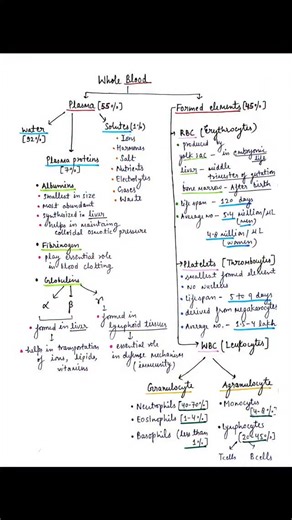 Whole Blood
Plasma [55%]
Formed elements [45%]
Water
[92%]
Solutes (1%)
• Ions
• Hormones
• Salt
• Nutrients
• Electrolytes
• Gases
• Waste
Plasma proteins
[7%]
• Albumins
• smallest in size
• most abundant
• synthesized in liver
• helps in maintaining
colloidal osmotic pressure
• Fibrinogen
• play essential role
in blood clotting
• Globulins
α β γ
• formed in liver
• helps in transportation
of ions, lipids,
vitamins
• formed in
lymphoid tissues
• essential role
in defense mechanism
(immunity)
RBC (Erythrocytes)
• produced
yolk sac - in embryonic
life
liver - middle
trimester of gestation
bone marrow - After birth
• Life span - 120 days
• Average no - 5.4 million/μL
(men)
4.8 million/μL
(women)
Platelets [Thrombocytes]
• smallest formed element
• No nucleus
• Lifespan - 5 to 9 days
• derived from megakaryocytes
• Average no. - 1.5-4 lakh
WBC [Leukocytes]
Granulocyte
• Neutrophils [40-70%]
• Eosinophils [1-4%]
• Basophils (less than
1%)
Agranulocyte
• Monocytes
[4-8%]
• Lymphocytes
[20-45%]
Tcells Bcells